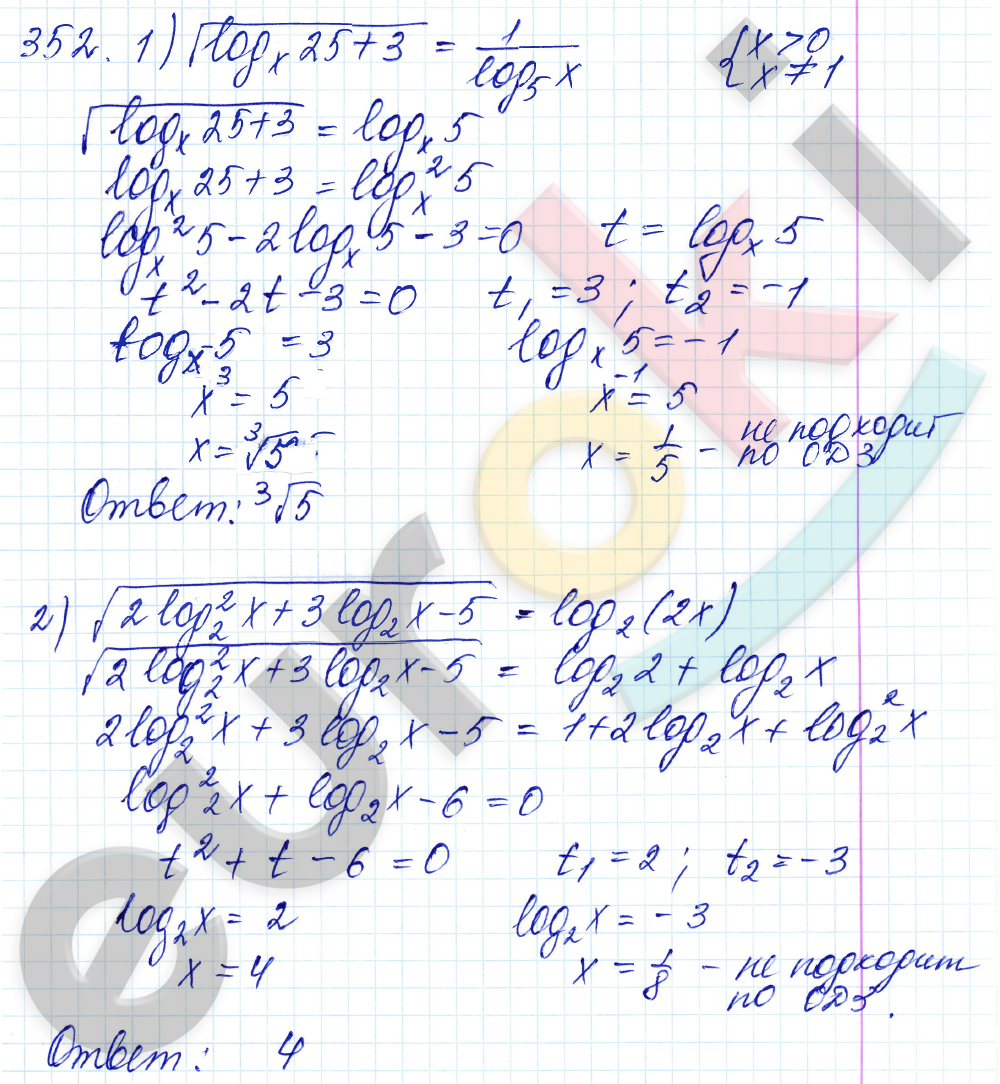 352. 1) √(log_x 25+3) = 1/(log_5 x) {x>0
x≠1
√(log_x 25+3) = log_x 5
log_x 25+3 = log_x^2 5
log_x^2 5 - 2log_x 5 - 3 = 0 t = log_x 5
t^2 - 2t - 3 = 0 t_1 = 3 ; t_2 = -1
log_x 5 = 3 log_x 5 = -1
x^3 = 5 x^-1 = 5
x = ∛5 x = 1/5 - не подходит
по ОДЗ
Ответ: ∛5
2) √(2log_2^2 x+3log_2 x-5) = log_2(2x)
√(2log_2^2 x+3log_2 x-5) = log_2 2 + log_2 x
2log_2^2 x + 3log_2 x - 5 = 1+2log_2 x + log_2^2 x
log_2^2 x + log_2 x - 6 = 0
t^2 + t - 6 = 0 t_1 = 2 ; t_2 = -3
log_2 x = 2 log_2 x = -3
x = 4 x = 1/8 - не подходит
по ОДЗ.
Ответ: 4
euroki